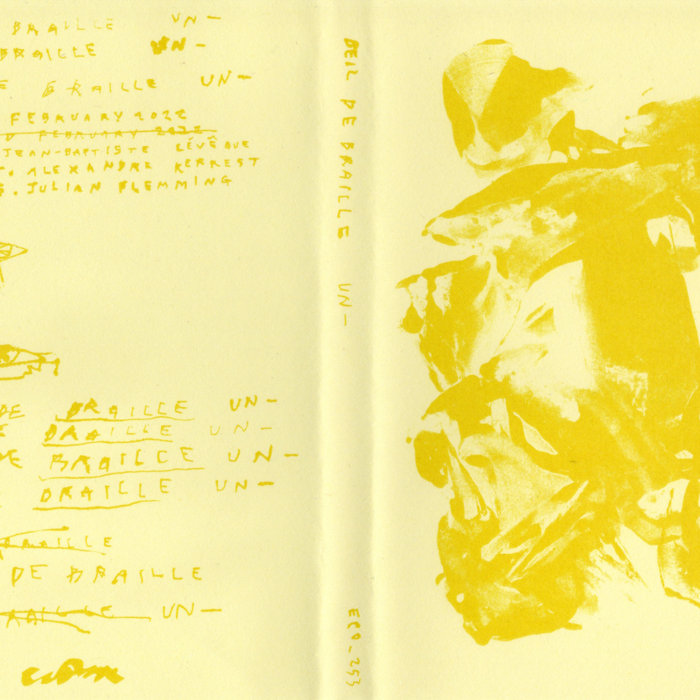 BRAILLE UN-
BRAILLE UN-
BRAILLE UN-
FEBRUARY 2022
FEBRUARY 2022
JEAN-BAPTISTE LÉVÊQUE
ALEXANDRE KERREST
S. JULIAN FLEMMING
DE BRAILLE UN-
BRAILLE UN-
DE BRAILLE UN-
BRAILLE UN-
BRAILLE
DE BRAILLE
BRAILLE UN-
DEIL DE BRAILLE UN-